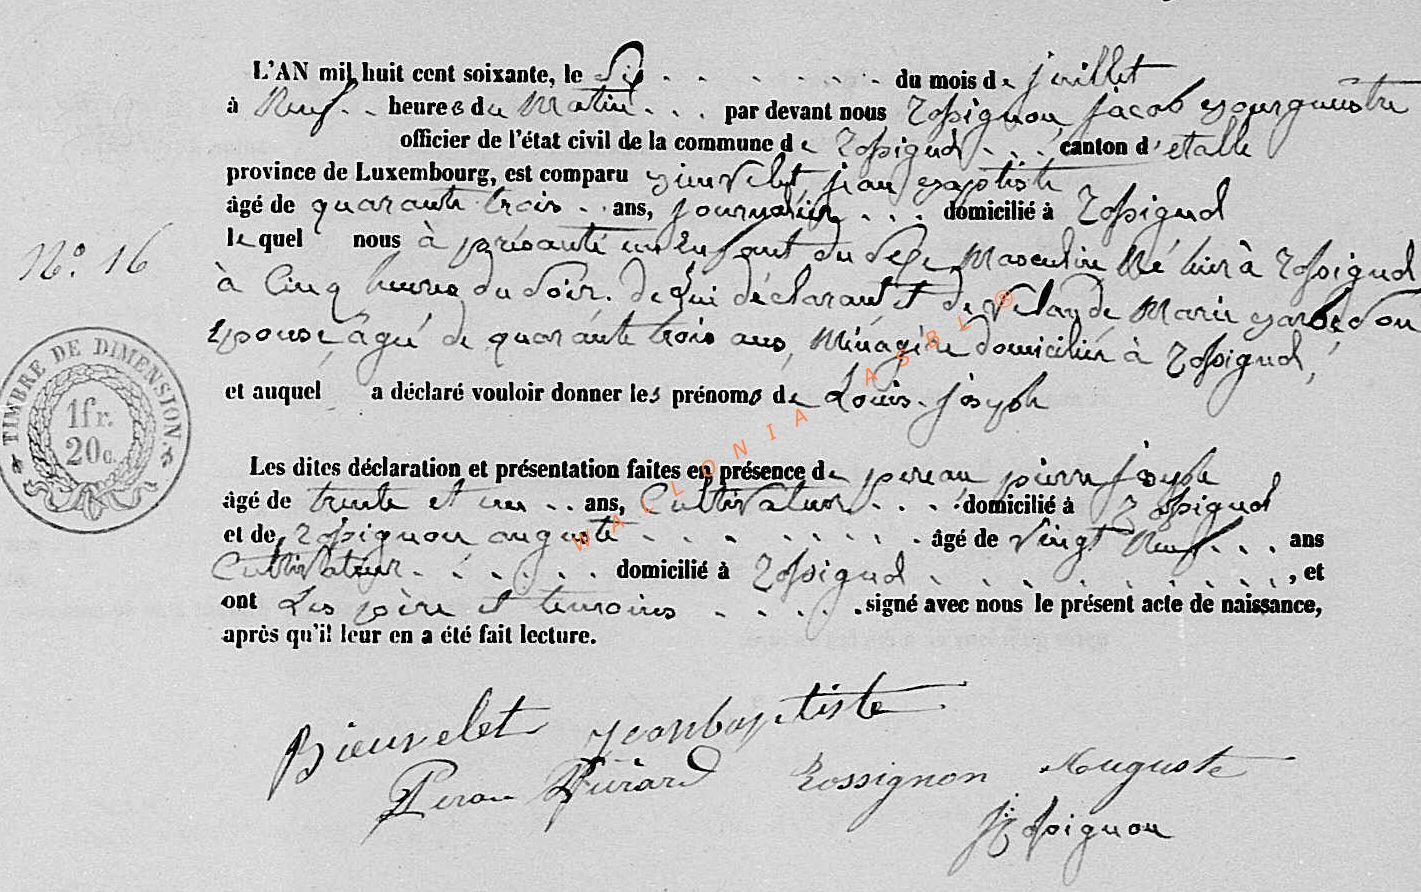 L'AN mil huit cent soixante, le Six . . . . . . . du mois de juillet
à Neuf . . heures du Matin . . . par devant nous Rossignon jacob Bourgmestre
officier de l'état civil de la commune de Rossignol . . . canton d'étalle
province de Luxembourg, est comparu Bieuvelet jean Baptiste
âgé de quarante trois . . ans, journalier . . . domicilié à Rossignol
N.o 16
lequel nous à présanté un Enfant du Sexe Masculin Né hier à Rossignol
à Cinq heures du Soir. De Lui déclarant et de Marie
Epouse âgé de quarante trois ans, Ménagère domiciliée à Rossignol,
et auquel a déclaré vouloir donner les prénoms de Louis joseph
TIMBRE DE DIMENSION.
1fr.
20c.
Les dites déclaration et présentation faites en présence de pierre joseph
âgé de trente et un . . ans, Cultivateur . . . . domicilié à Rossignol
et de Rossignon auguste . . . . . . . . . âgé de vingt Neuf . . . ans
Cultivateur . . . . . . domicilié à Rossignol . . . . . . . . . , et
ont Les père et temoins . . . . . signé avec nous le présent acte de naissance,
après qu'il leur en a été fait lecture.
WALLONIA ASBL ®
Bieuvelet jeanbaptiste
Rossignon Auguste
Rossignon